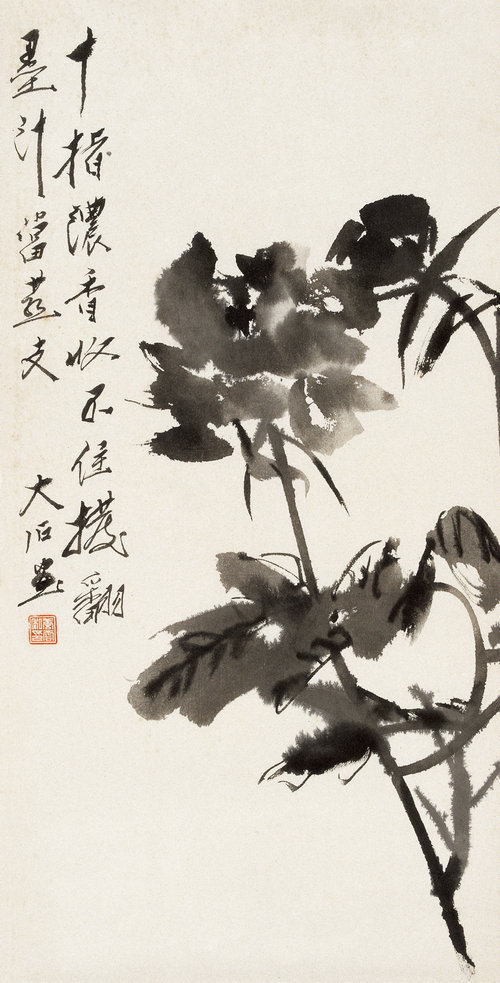 十指濃香收不住翻
墨汁當燕支
大石畫